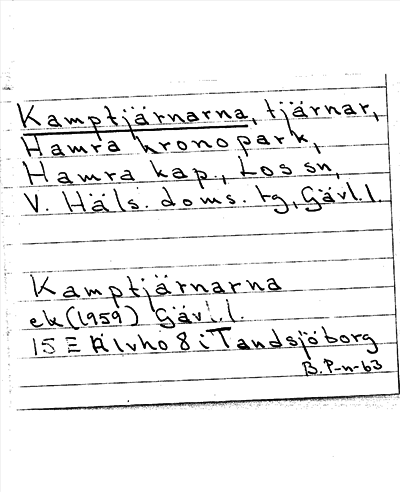 Kamptjärnarna, tjärnar,
Hamra kronopark,
Hamra kap., Los sn,
V. Häls. doms. tg, Gävl. l.
Kamptjärnarna
ek (1959) Gävl. l.
15 E Älvho 8 i Tandsjöborg
B. P-n-63